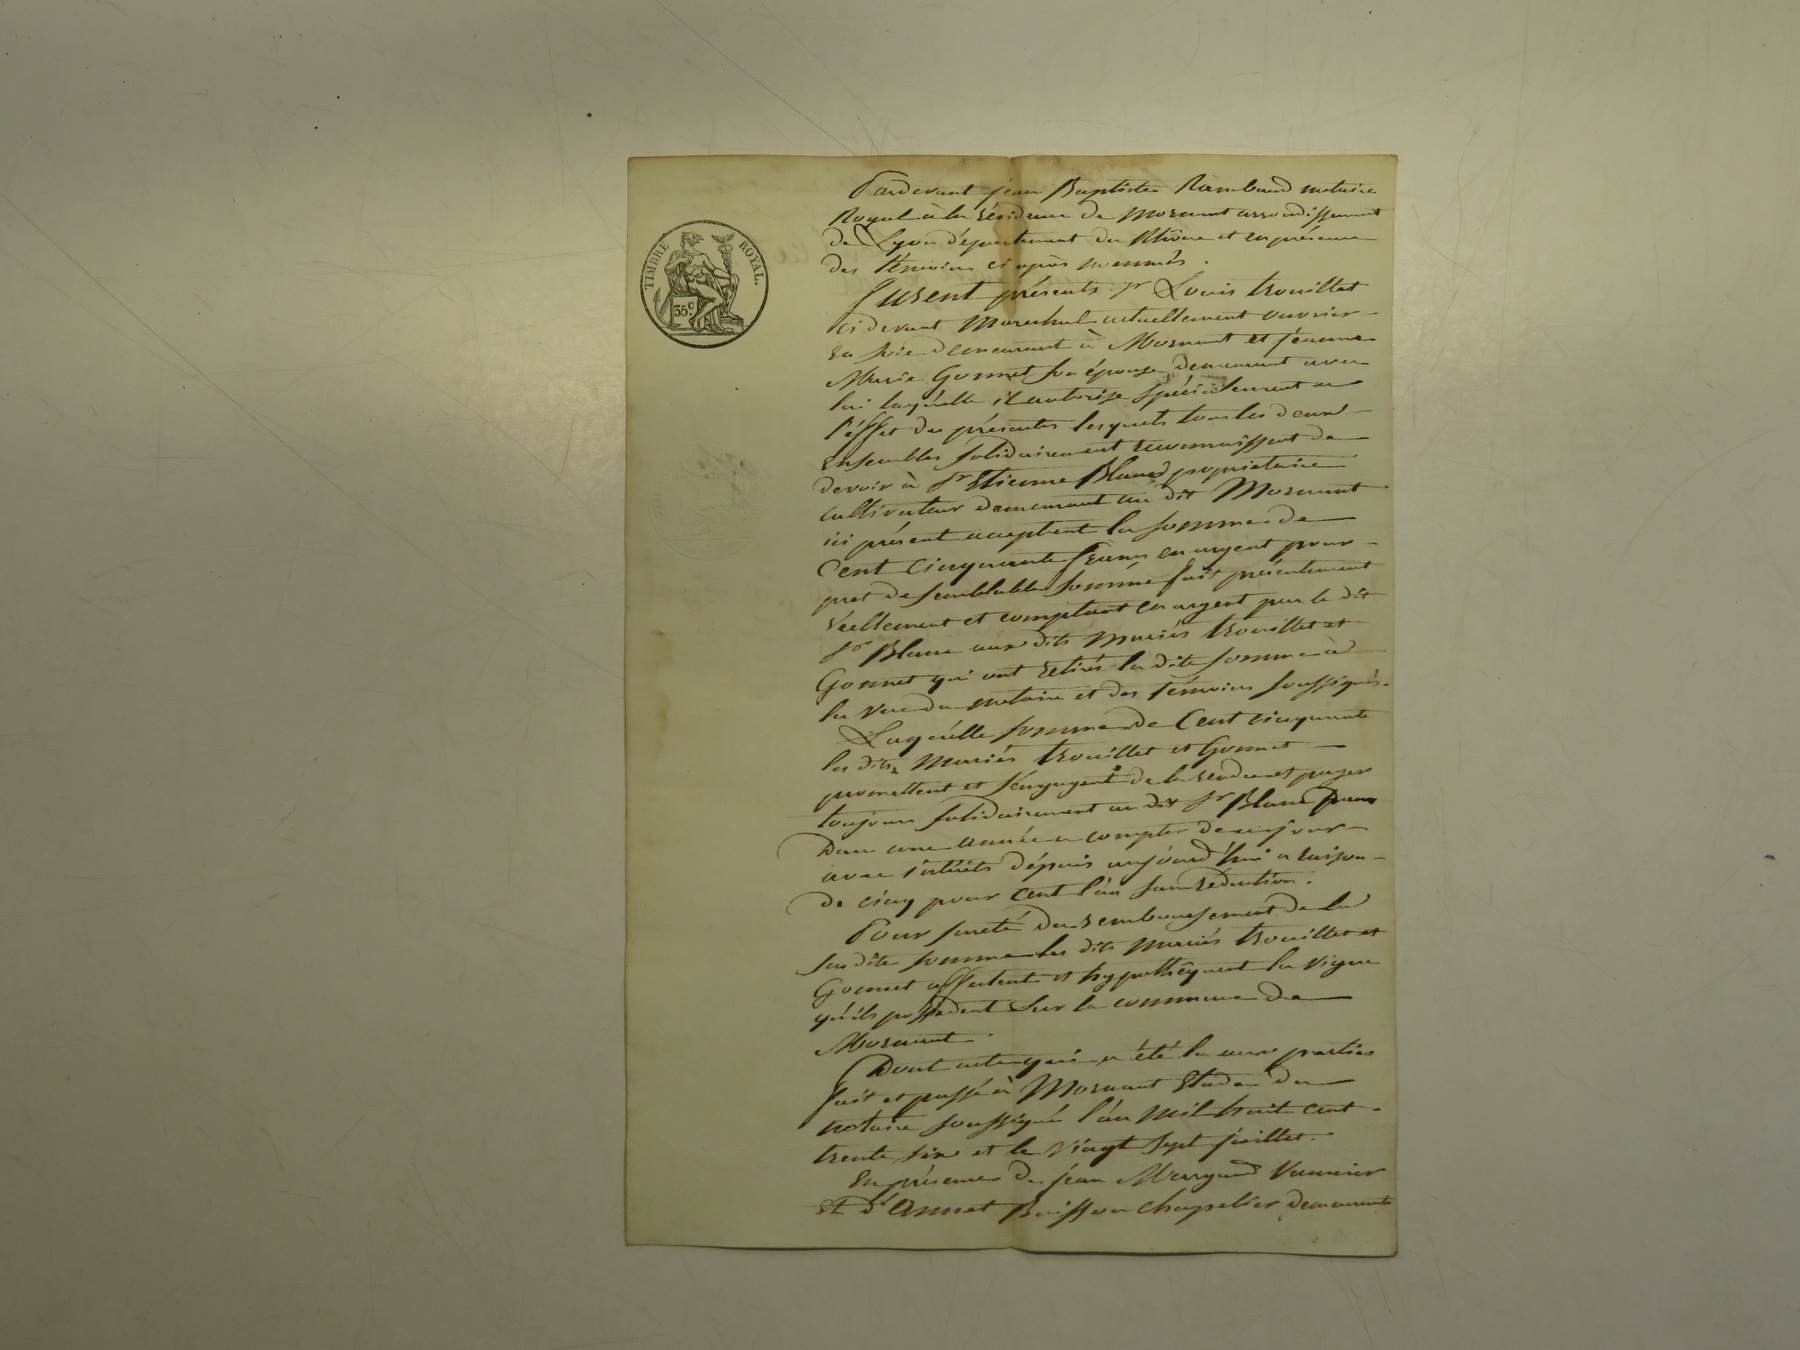 TIMBRE ROYAL.
35c.
Pardevant jean Baptiste Rambaud notaire
Royal à la résidence de Mornant arrondissement
de Lyon département du Rhône et en présence
des témoins ci après nommés.
furent présents Sr Louis trouillet
ci devant Marechal actuellement ouvrier
en soie demeurant à Mornant et jeanne
Marie Gonnet son épouse demeurant avec
lui laquelle il autorise spécialement a
l'éffet des présentes lesquels tous les deux
ensembles solidairement reconnaissent de
devoir à Sr Etienne Blanc propriétaire
cultivateur demeurant au dit Mornant
ici présent acceptant la somme de
Cent cinquante francs en argent pour
pret de semblable somme fait présentement
réellement et comptant en argent par le dit
Sr Blanc aux dits Mariés trouillet et
Gonnet qui ont retirés la dite somme à
la vue du notaire et des témoins soussignés.
Laquélle somme de Cent cinquante
les dits Mariés trouillet et Gonnet
promettent et s'engagent de la rendre et payer
toujours solidairement au dit Sr Blanc
Dans une année a compter de ce jour
avec intérêts dépuis aujourd'hui a raison
de cinq pour cent l'an sans réduction.
Pour sureté du remboursement de la
sus dite somme les dits mariés trouillet et
Gonnet affectent et hypothêquent la vigne
qu'ils possedent sur la commune de
Mornant
Dont acte qui a été lu aux parties
fait et passé à Mornant Etude du
notaire soussigné l'an mil huit cent
trente six et le vingt sept juillet.
En présence de jean Margand Vannier
et d'Annet Buisson chapelier demeurants